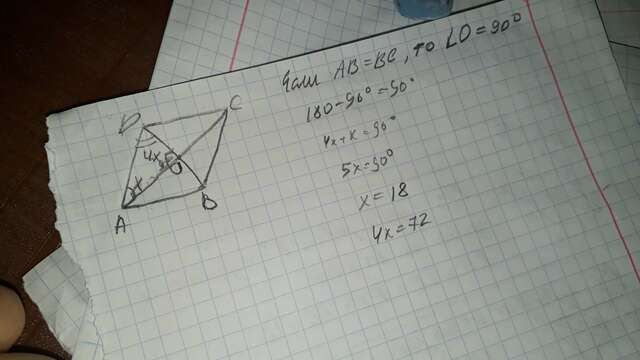 Если AB=BC, то ∠O=90°
180-90°=90°
4x+x=90°
5x=90°
x=18
4x=72
D
C
4x
O
x
A
B